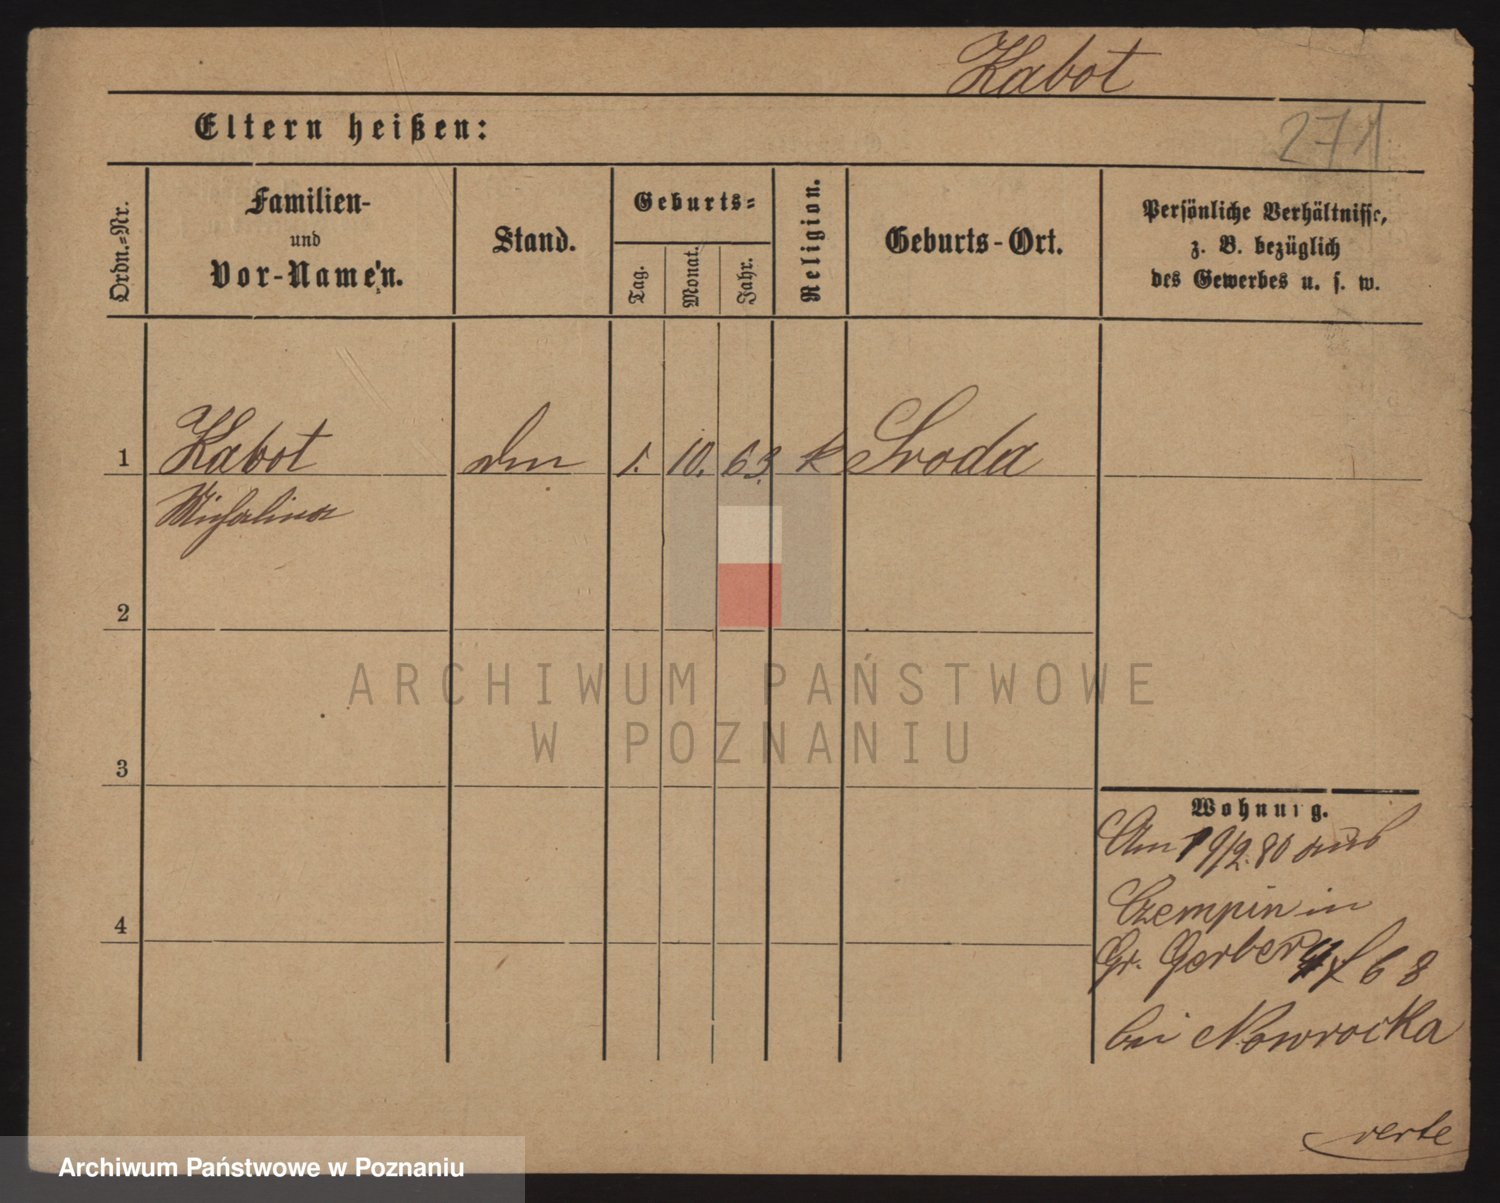 Kabot
Eltern heißen:
271
Ordn.=Nr.
Familien-
und
Vor-Namen.
Stand.
Geburts=
Tag.
Monat.
Jahr.
Religion.
Geburts-Ort.
Persönliche Verhältnisse,
z. B. bezüglich
des Gewerbes u. s. w.
1 Kabot 1. 10. 63. k Sroda
Michalina
2
3
4
Wohnung.
Am 19/2. 80 aus
Czempin in
Gr. Gerber 68
bei Nowrocka
verte
ARCHIWUM PAŃSTWOWE
W POZNANIU
Archiwum Państwowe w Poznaniu